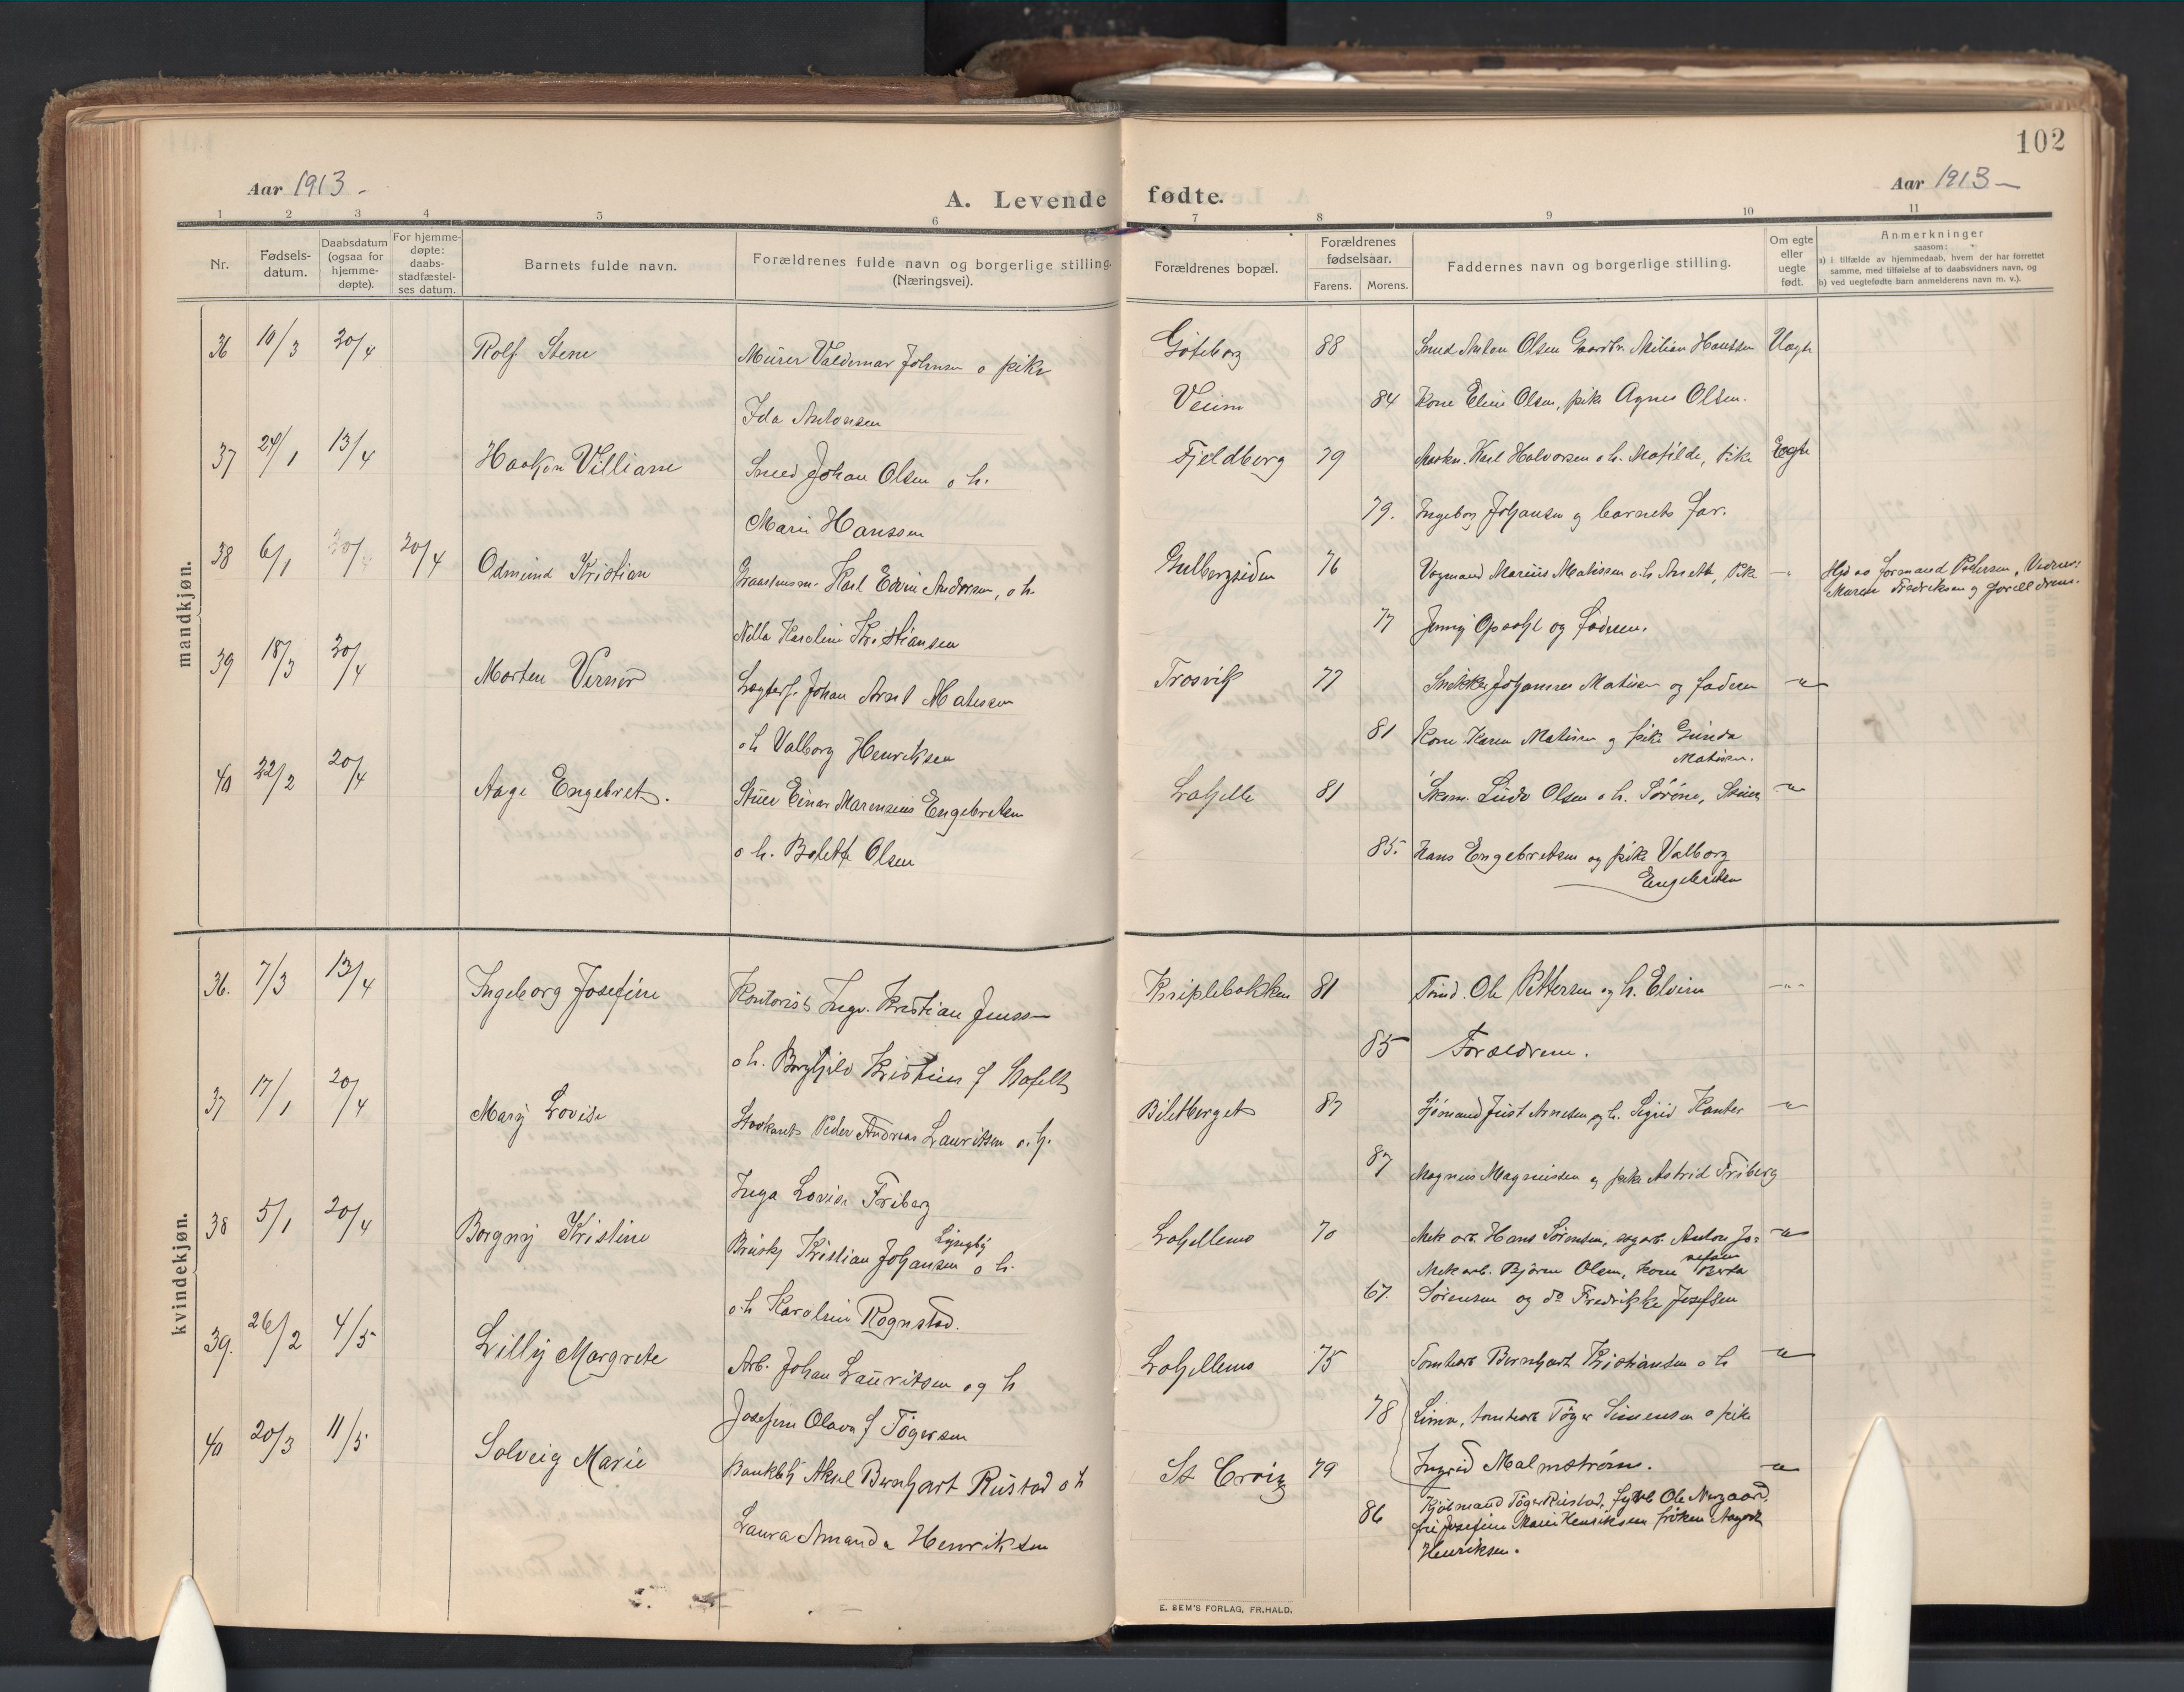 102
Aar 1913 -
A. Levende fødte.
Aar 1913 —
1 2 3 4 5 6 7 8 9 10 11
Nr.
Fødsels-
datum.
Daabsdatum
(ogsaa for
hjemme-
døpte).
For hjemme-
døpte:
daabs-
stadfæstel-
ses datum.
Barnets fulde navn.
Forældrenes fulde navn og borgerlige stilling.
(Næringsvei).
Forældrenes bopæl.
Forældrenes
fødselsaar.
Farens. Morens.
Faddernes navn og borgerlige stilling.
Om egte
eller
uegte
født.
Anmerkninger
saasom:
a) i tilfælde av hjemmedaab, hvem der har forrettet
samme, med tilføielse af to daabsvidners navn, og
b) ved uegtefødte barn anmelderens navn m. v.).
mandkjøn.
36 10/3 20/4 Rolf Stene Murer Valdemar Johnsen o pike Göteborg 88 Smed Anton Olsen Milian Hanssen Uegte
Ida Antonsen Veum 84 Kone Eline Olsen, pike Agnes Olsen.
37 24/1 13/4 Haakon Villiam Smed Johan Olsen o h. Fjeldberg 79 Karl Halvorsen o h. Matilde, pike Egte
Marie Hanssen 79. Ingeborg Johansen og barnets far.
38 6/1 20/4 20/4 Odmund Kristian Karl Edvin Andersen, o h. Gulbergsiden 76 Vognmand Marius Matissen o h Anette, Pike - Hjd av Formand Pedersen, Vidner:
Maren Fredriksen og forældrene.
Nilla Karoline Kristiansen 77 Jenny Opsahl og faderen.
39 18/3 20/4 Morten Verner Johan Axel Matissen Trosvik 77 Snekker Johannes Matisen og faderen -"-
o h Valborg Henriksen 81 Kone Karen Matisen og pike Gunda
Matisen.
40 22/2 20/4 Aage Engebret. Stuer Einar Marensius Engebretsen Lahelle 81 Skom. Ludv Olsen o h. Sørine, Stuer -"-
o h. Bolette Olsen 85. Hans Engebretsen og pike Valborg
Engebretsen
kvindekjøn.
36. 7/3 13/4 Ingeborg Josefine Kontorist Ingv. Kristian Jenssen Kniplebakken 81 Ole Pettersen og h. Elvire -"-
o h. Borghild Kristine f 85 Forældrene.
37 17/1 20/4 Mary Lovise Peder Andreas Lauritsen o. h. Biletberget 87 Sjømand Just Arnesen og h. Sigrid -"-
Inga Lovise Friberg 87 Magnus Magnussen og pike Astrid Friberg
38 5/1 20/4 Borgny Kristine Brusky Kristian Johansen Lyngby o h. Lahellemo 70 Mek arb. Hans Sørensen, Anton Jo= -"-
sefsen
Mek arb. Bjarne Olsen, kone Berta
o h Karoline Rognstad. 67. Sørensen og do Fredrikke Josefsen
39. 26/2 4/5 Lilly Margrete Arb. Johan Lauritsen og h Lahellemo 75 Tomtearb Bernhart Kristiansen o h -"-
Josefine Olava f Tøgersen 78 Lina, tomtearb Tøger Simensen o pike
Ingrid Malmstrøm.
40 20/3 11/5 Solveig Marie Aksel Bernhart Rustad o h St Croix 79 -"-
Laura Amanda Henriksen 86 Kjøbmand Tøger Rustad, Ole Nygaard,
fru Josefine Marie Henriksen frøken Aagot
Henriksen.
E. SEM'S FORLAG, FR.HALD.